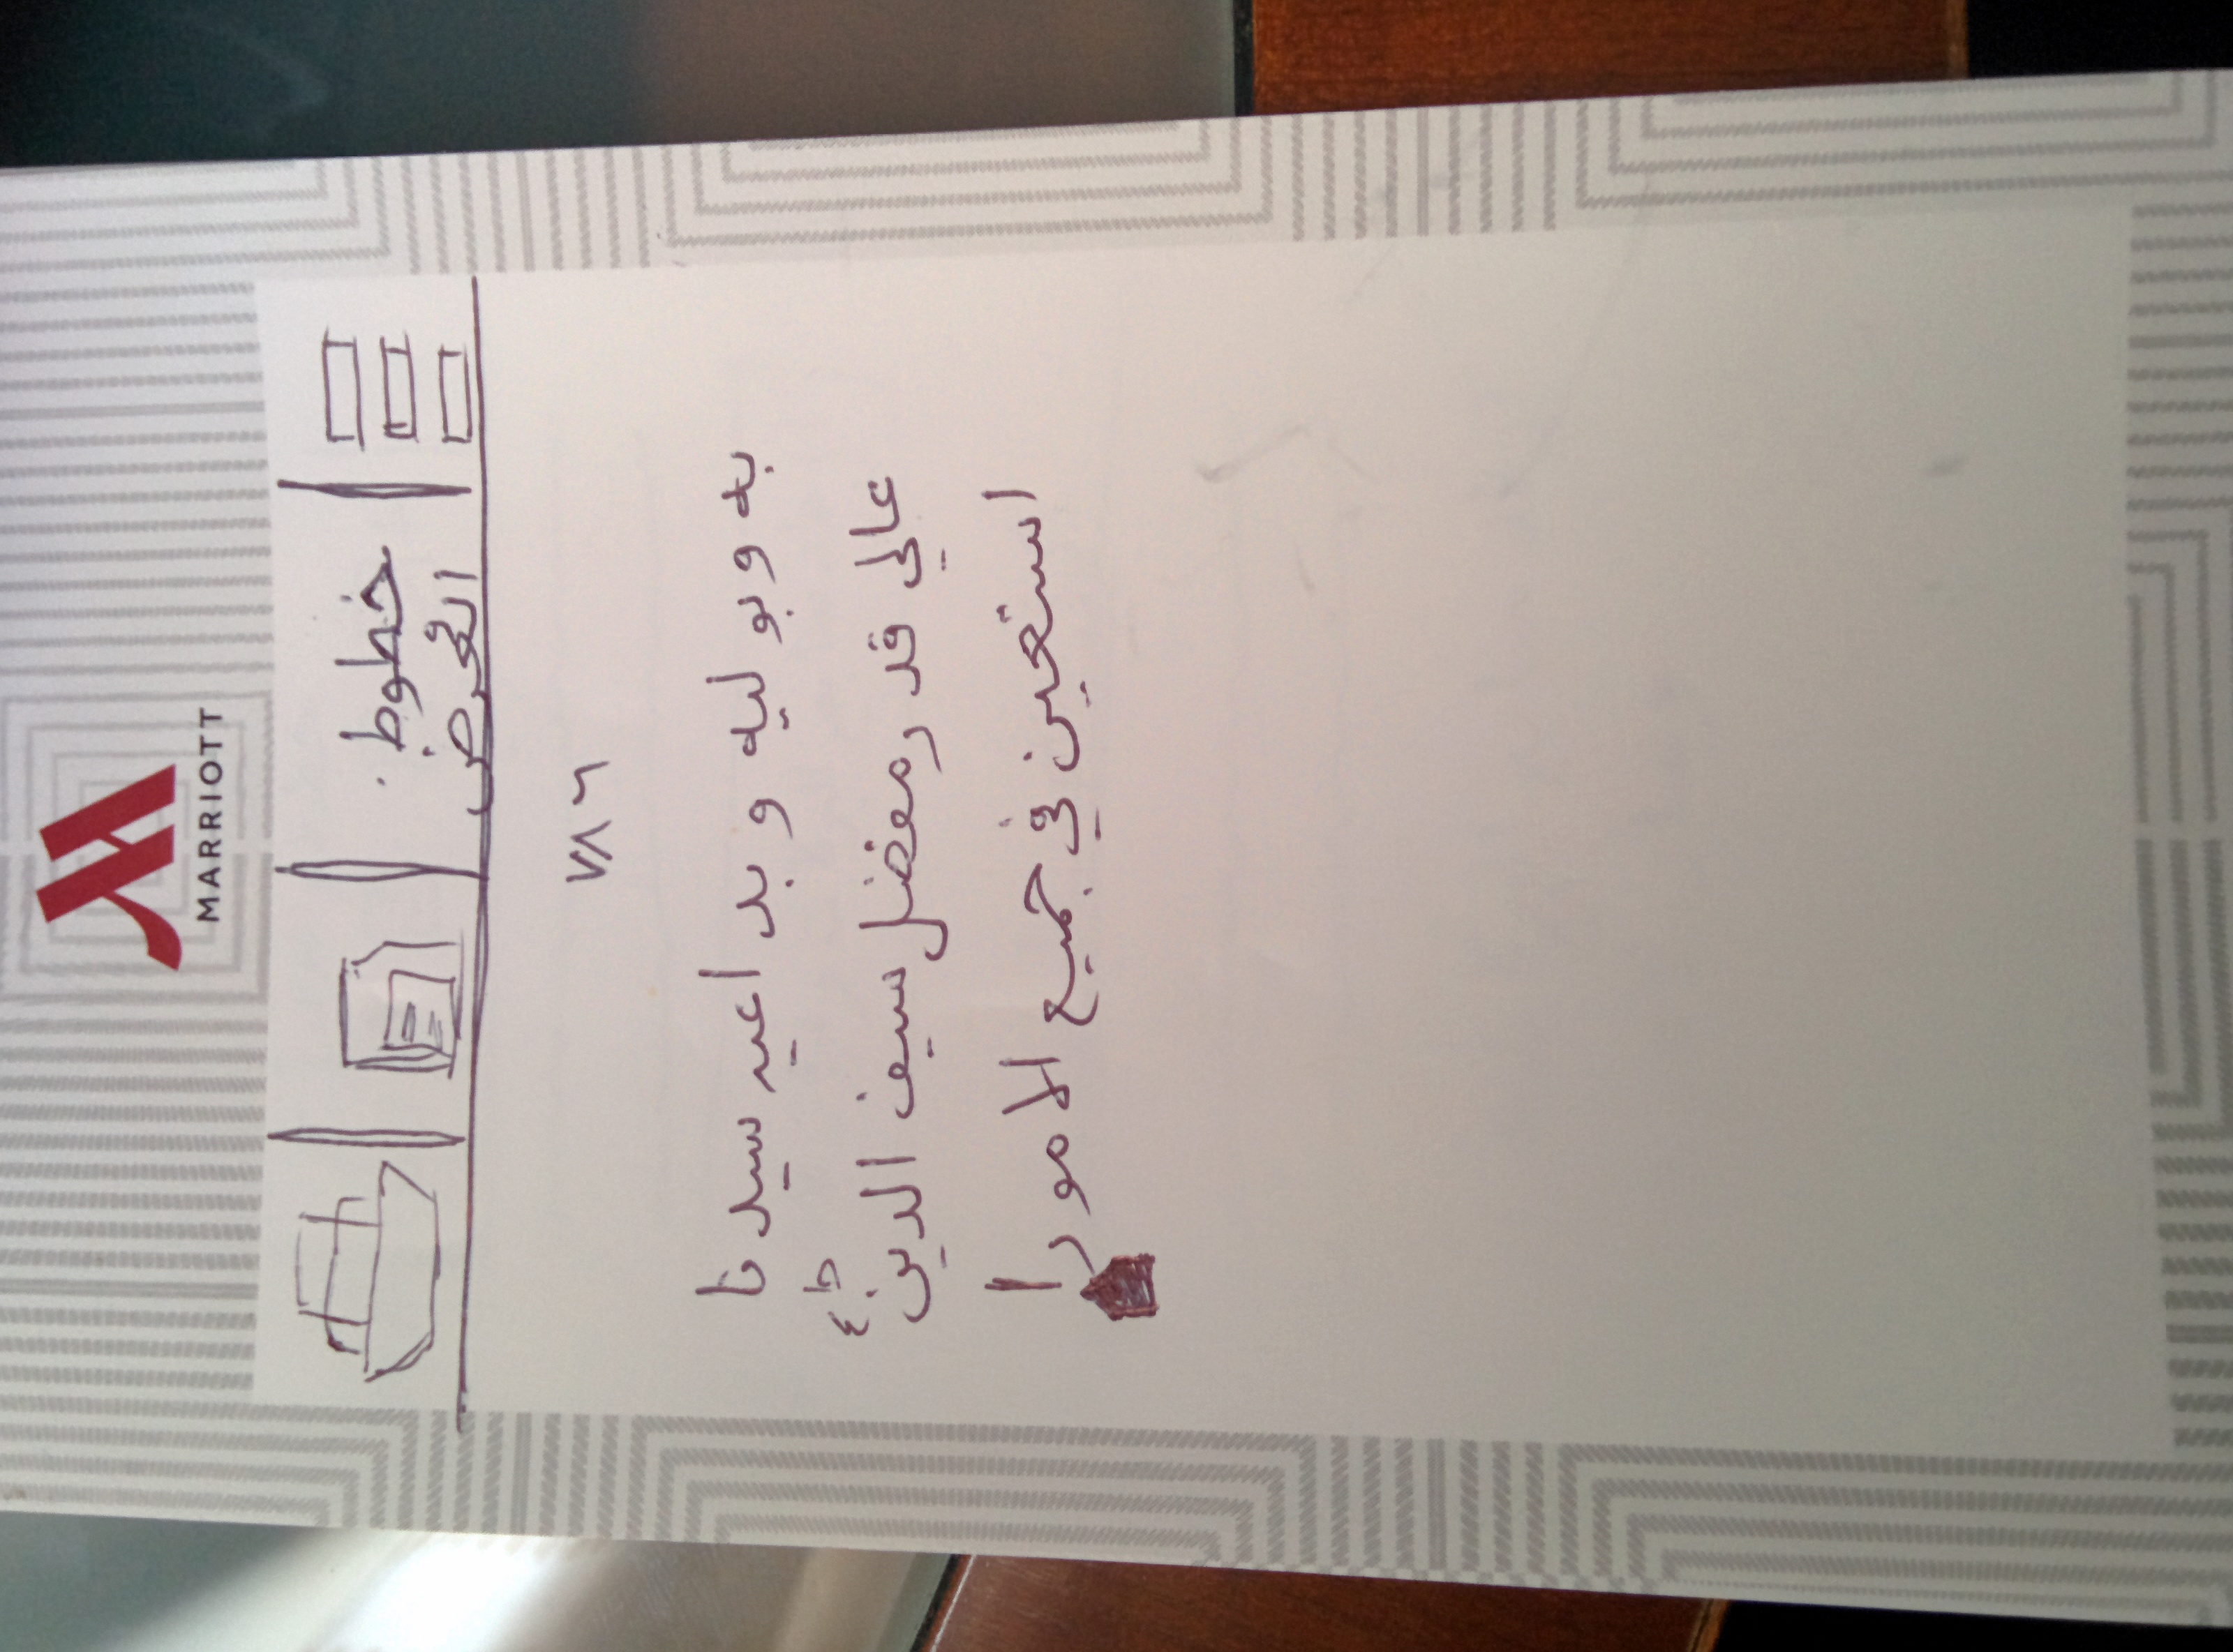 MARRIOTT
خطوط
العرض
٧٨٦
به وبو ليه و بد اعير سيد نا
عالي قد رمفضل سيف الدين
ط ع
استعين في جميع الامور ا